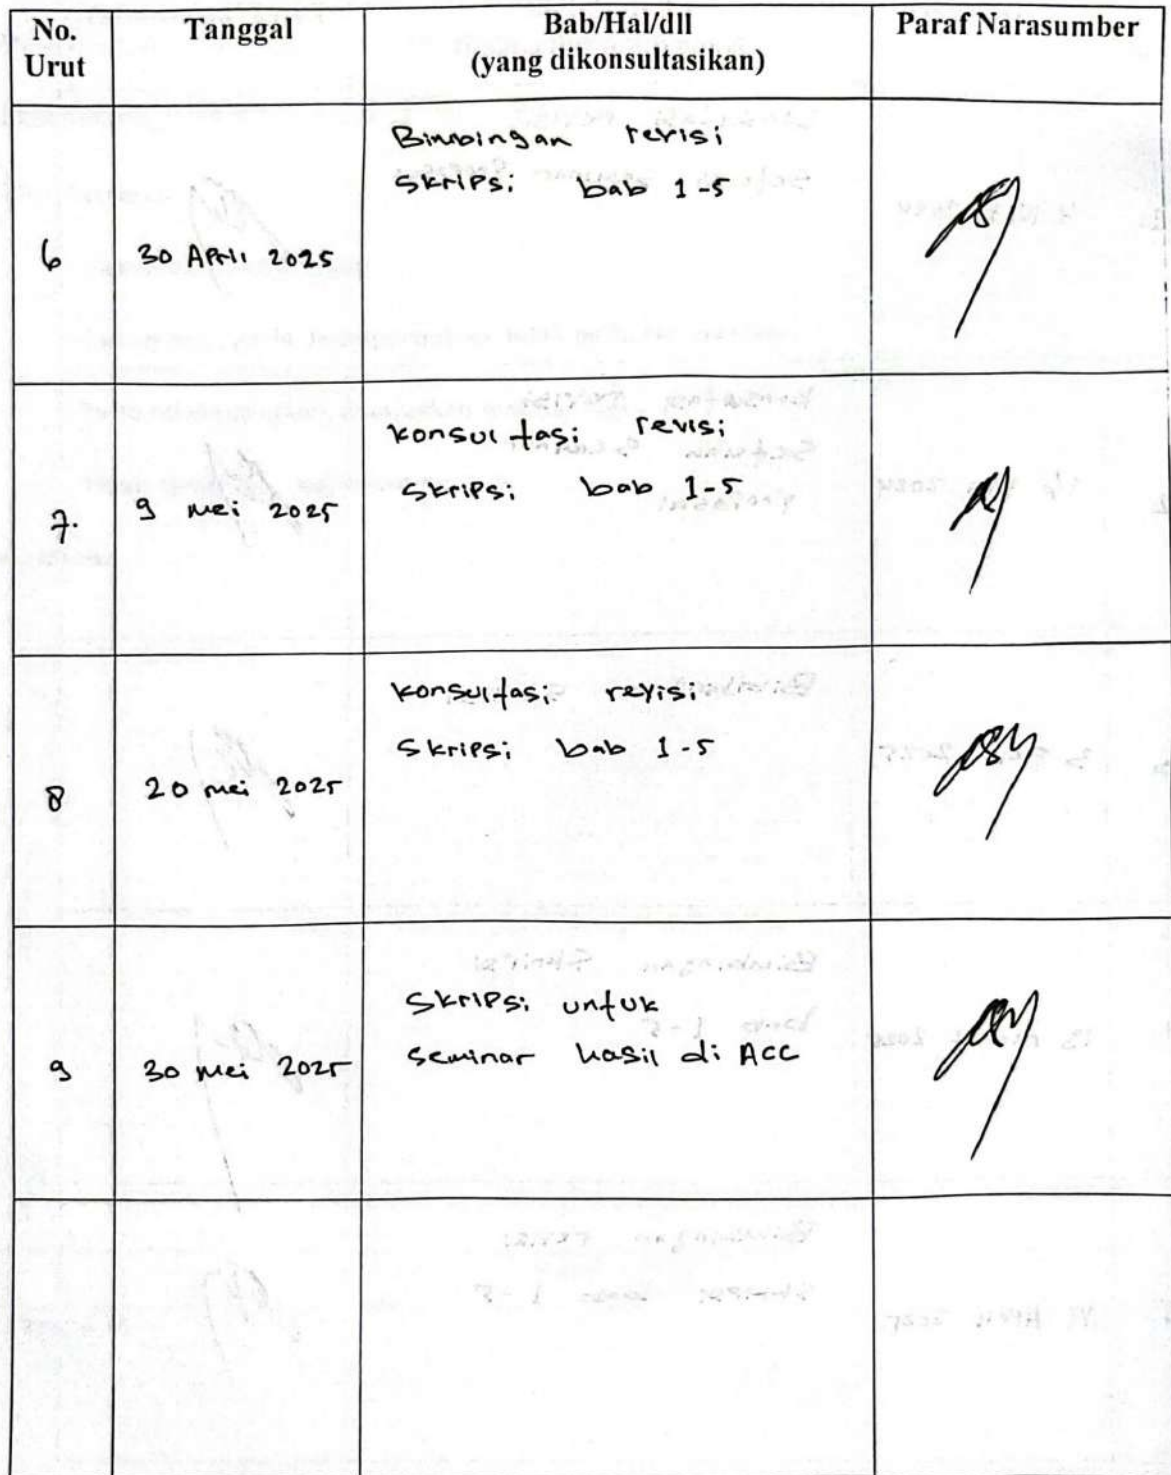 No. Urut
Tanggal
Bab/Hal/dll
(yang dikonsultasikan)
Paraf Narasumber
6
30 April 2025
Bimbingan revisi
Skripsi bab 1-5
7.
9 mei 2025
konsultasi revisi
Skripsi bab 1-5
8
20 mei 2025
konsultasi revisi
Skripsi bab 1-5
9
30 mei 2025
Skripsi untuk
seminar hasil di ACC